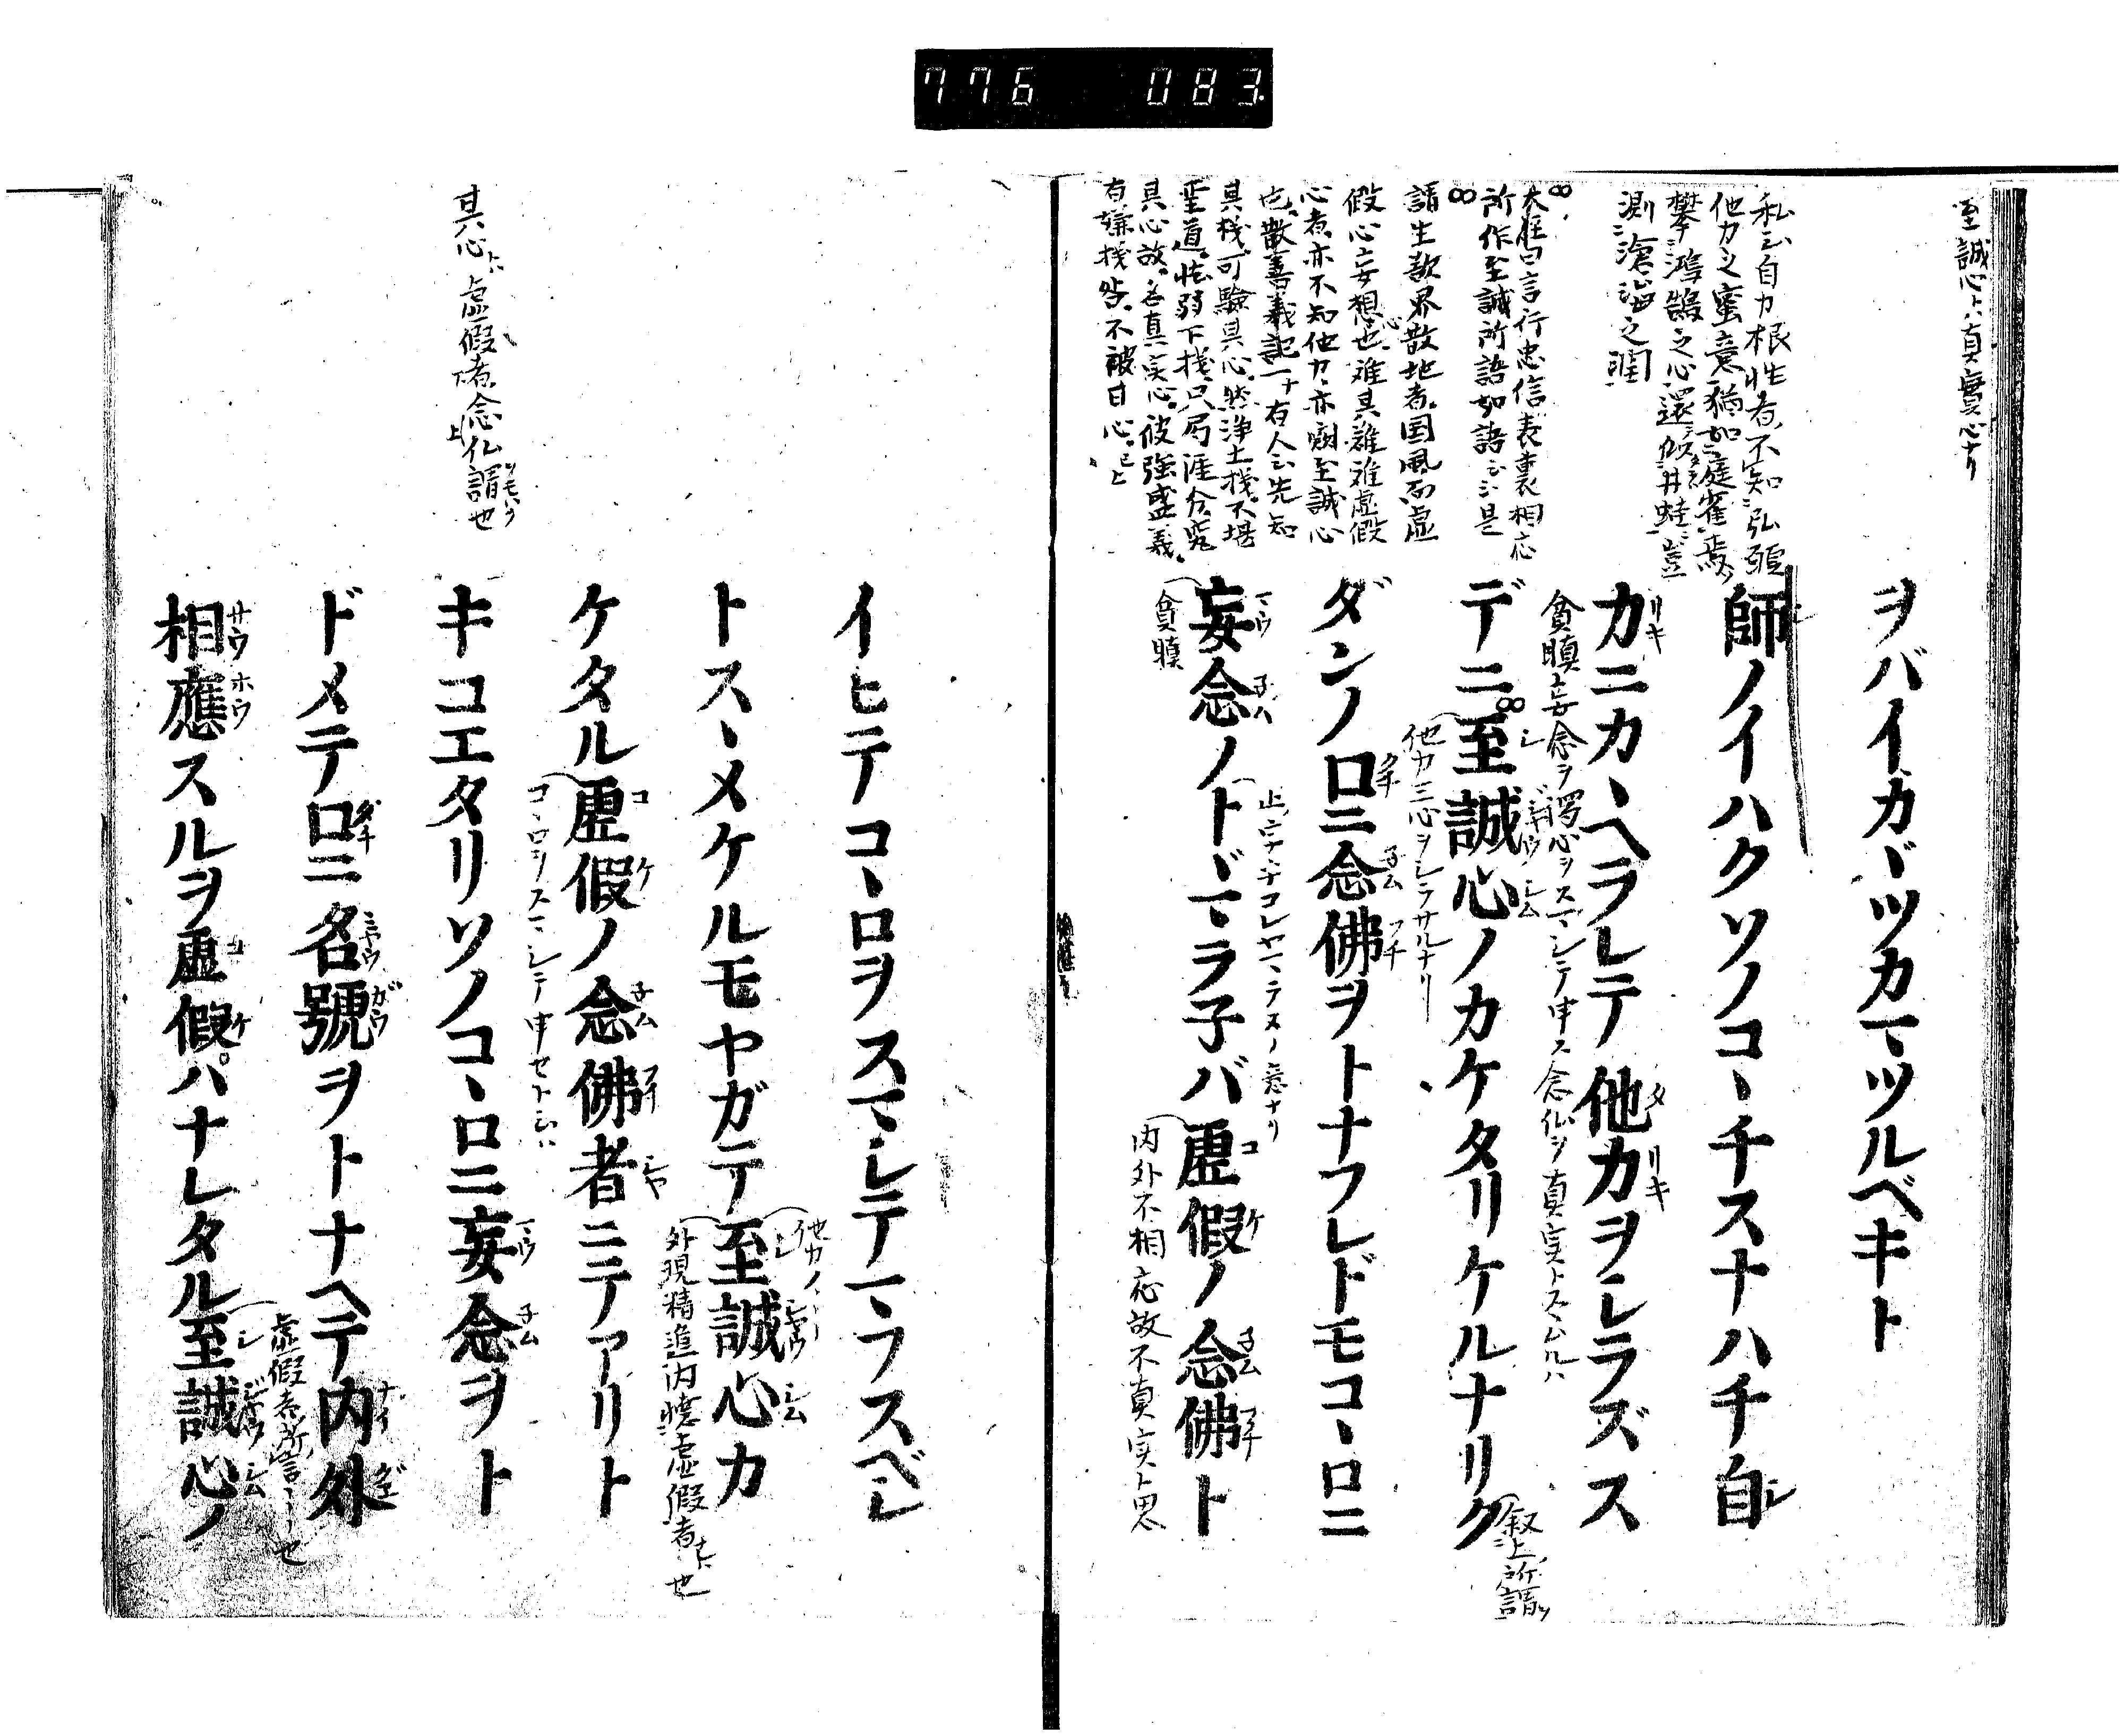 776 083
至誠心トハ真實心ナリ
私云自力根性者不知弘願
他力之蜜意猶如庭雀焉
攀鴻鵠之心還似井蛙豈
測滄海之潤
大経曰言行忠信表裏相応
所作至誠所語如語云云是
謂生欲界散地者国風而虚
假心妄想心也雖具雑雑虚假
心者亦不知他力亦嘲至誠心
也散善義記一十有人云先知
具機可驗具心然浄土機不堪
聖道怯弱下機只局涯分究
具心故名真実心彼強盛義
有嫌機等不被甘心已上
ヲバイカヾツカマツルベキト
師ノイハクソノコヽチスナハチ自
力ニカヽヘラレテ他力ヲシラズス
貪瞋妄念ヲ濁心ヲスマシテ申ス念仏ヲ真実トスムルハ
デニ至誠心ノカケタリケルナリク
叙上所謂
他力三心ヲシラサルナリ
ダンノ口ニ念佛ヲトナフレドモコヽロニ
止
コレヤマテヌノ意ナリ
妄念ノトヾマラ子バ虚假ノ念佛ト
貪瞋
内外不相応故不真実ト思
イヒテコヽロヲスマシテマフスベシ
他力ノ
トスヽメケルモヤガテ至誠心カ
外現精進内懐虚假者ナト也
ケタル虚假ノ念佛者ニテアリト
コヽロヲスマシテ申セト云ハ
キコエタリソノコヽロニ妄念ヲト
其心ト虚假者念仏謂也
ドメテ口ニ名號ヲトナヘテ内外
虚假者所言
相應スルヲ虚假ハナレタル至誠心ノ